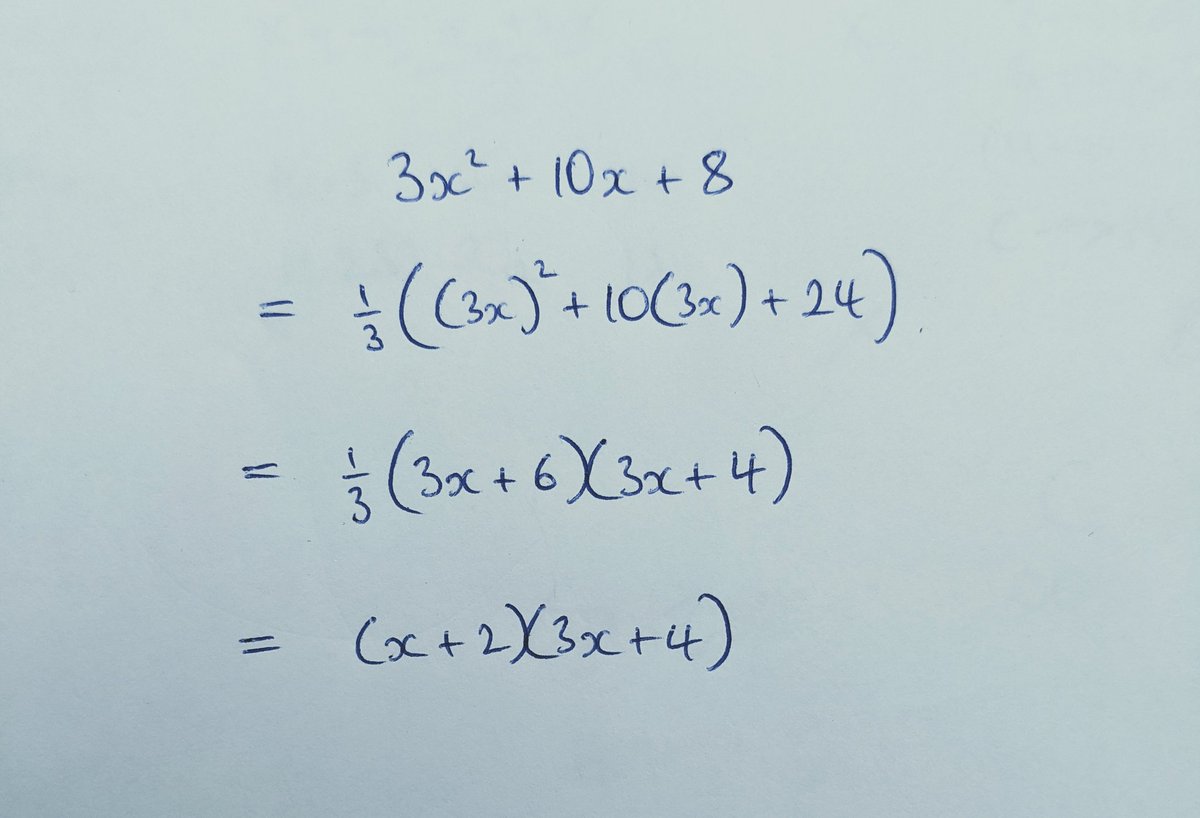 3x² + 10x + 8
= 1/3 ((3x)² + 10(3x) + 24)
= 1/3 (3x + 6)(3x + 4)
= (x + 2)(3x + 4)